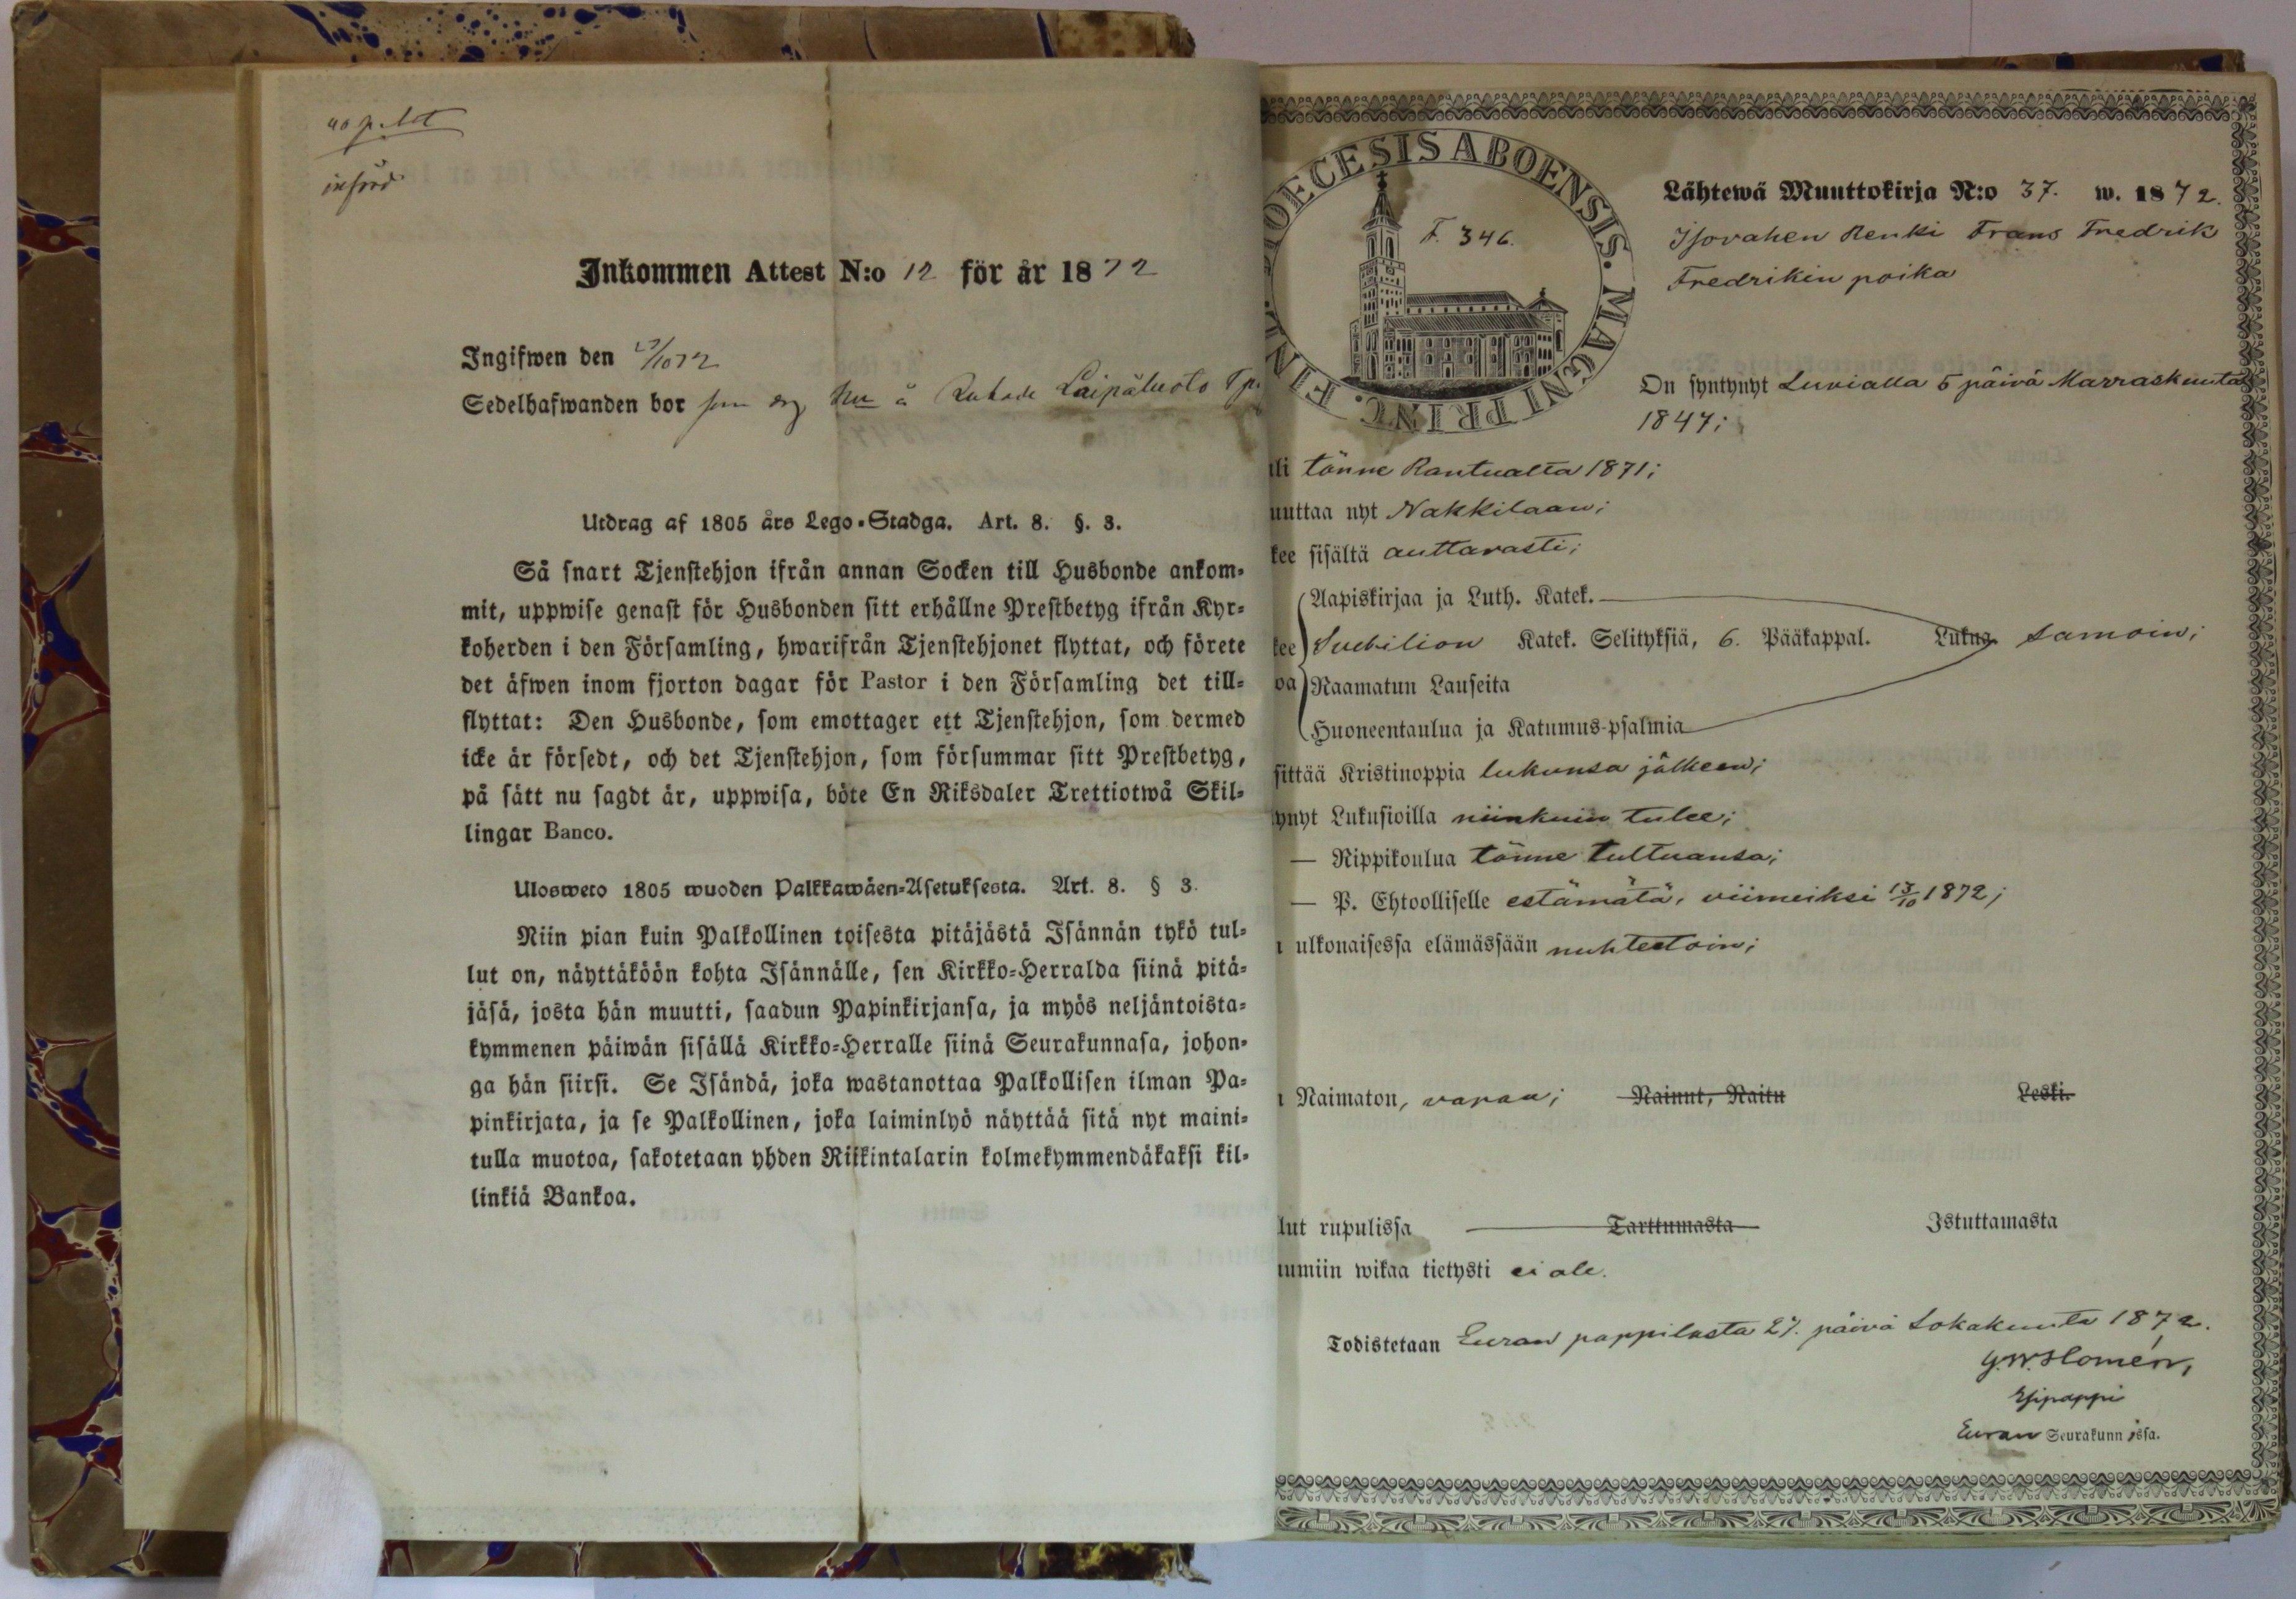 införd
Inkommen Attest N:o 12 för år 1872
Ingifwen den 27/10 72
Sedelhafwanden bor som drg hu å Laipäluoto
Utdrag af 1805 års Lego-Stadga. Art. 8. §. 3.
Så snart Tjenstehjon ifrån annan Socken till Husbonde ankom-
mit, uppwise genast för Husbonden sitt erhållne Prestbetyg ifrån Kyr-
koherden i den Församling, hwarifrån Tjenstehjonet flyttat, och förete
det äfwen inom fjorton dagar för Pastor i den Församling det till-
flyttat: Den Husbonde, som emottager ett Tjenstehjon, som dermed
icke är försedt, och det Tjenstehjon, som försummar sitt Prestbetyg,
på sätt nu sagdt är, uppwisa, böte En Riksdaler Trettiotwå Skil-
lingar Banco.
Ulosweto 1805 wuoden Palkkawäen-Asetuksesta. Art. 8. § 3.
Niin pian kuin Palkollinen toisesta pitäjästä Isännän tykö tul-
lut on, näyttäköön kohta Isännälle, sen Kirkko-Herralda siinä pitä-
jäsä, josta hän muutti, saadun Papinkirjansa, ja myös neljäntoista-
kymmenen päiwän sisällä Kirkko-Herralle siinä Seurakunnasa, johon-
ga hän siirsi. Se Isändä, joka wastanottaa Palkollisen ilman Pa-
pinkirjata, ja se Palkollinen, joka laiminlyö näyttää sitä nyt maini-
tulla muotoa, sakotetaan yhden Riikintalarin kolmekymmendäkaksi kil-
linkiä Bankoa.
DIOECESIS ABOENSIS. MAGNI PRINC. FINL.
F. 346.
Lähtewä Muuttokirja N:o 37. w. 1872.
Isovahen Renki Frans Fredrik
Fredrikin poika
On syntynyt Luvialla 5 päivä Marraskuuta
1847;
li tänne Rantualta 1871;
uuttaa nyt Nakkilaan;
kee sisältä auttavasti;
Aapiskirjaa ja Luth. Katek.
kee Svebilion Katek. Selityksiä, 6. Pääkappal. Lukua samoin;
oa Raamatun Lauseita
Huoneentaulua ja Katumus-psalmia
sittää Kristinoppia lukunsa jälkeen;
ynyt Lukusioilla niinkuin tulee;
— Rippikoulua tänne tultuansa;
— P. Ehtoolliselle estämätä, viimeiksi 13/10 1872;
ulkonaisessa elämässään nuhteetoin;
Naimaton, vapaa; Nainut, Naitu Leski.
lut rupulissa Tarttumasta Istuttamasta
umiin wikaa tietysti ei ole.
Todistetaan Euran pappilasta 27. päivä Lokakuuta 1872.
G.W. Homén,
Esipappi
Euran Seurakunnissa.